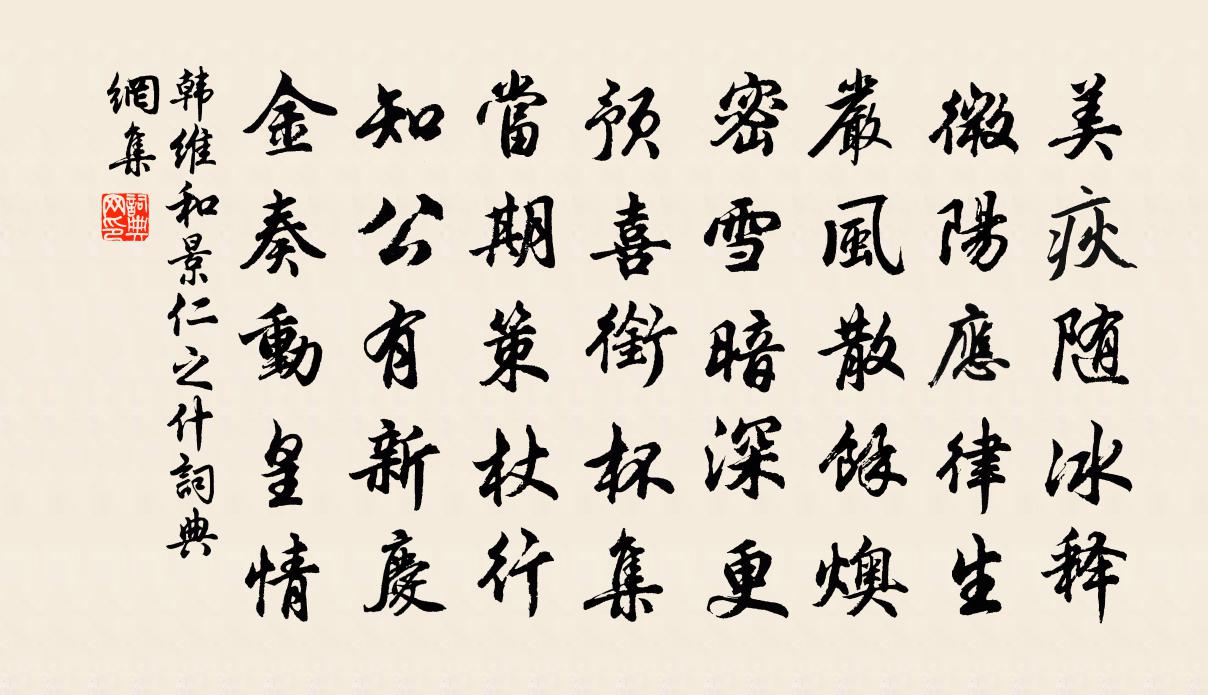 美疢随冰释
微陽應律生
嚴風散餘燠
密雪暗深更
预喜銜杯集
當期策杖行
知公有新慶
金奏動皇情
韩維和景仁之什詞典
網集
詞典
网印